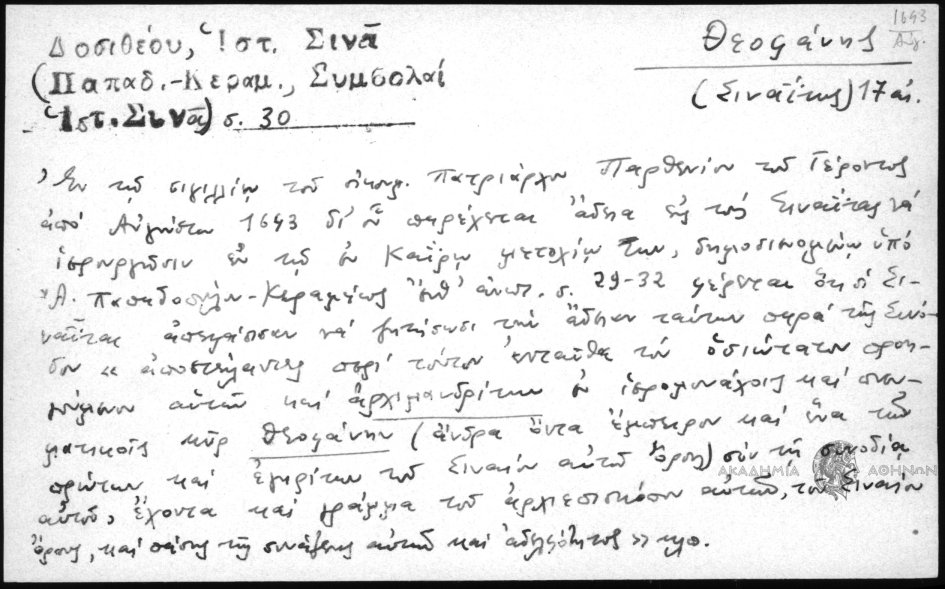 1643
Αὐγ.
Δοσιθέου, Ἱστ. Σινᾶ
(Παπαδ.-Κεραμ., Συμβολαί
Ἱστ. Σινᾶ) σ. 30
Θεοφάνης
(Σιναΐτης) 17 αἰ.
Ἐν τῷ σιγιλλίῳ τοῦ οἰκουμ. Πατριάρχου Παρθενίου τοῦ Γέροντος
ἀπό Αὐγούστου 1643 δι' οὗ παρέχεται ἄδεια εἰς τούς Σιναΐτας νά
ἱερουργῶσιν ἐν τῷ ἐν Καΐρῳ μετοχίῳ των, δημοσιευομένῳ ὑπό
Ἀ. Παπαδοπούλου-Κεραμέως ἔνθ' ἀνωτ. σ. 29-32 φέρεται ὅτι οἱ Σι-
ναΐται ἀπεφάσισαν νά ζητήσωσι τήν ἄδειαν ταύτην παρά τῆς Συνό-
δου « ἀποστείλαντες περί τούτου ἐνταῦθα τόν ὁσιώτατον προη-
γούμενον αὐτῶν καί ἀρχιμανδρίτην ἐν ἱερομονάχοις καί πνευ-
ματικοῖς κῦρ Θεοφάνην (ἄνδρα ὄντα ἔμπειρον καί ἕνα τῶν
πρώτων καί ἐγκρίτων τοῦ Σιναίου αὐτοῦ ὄρους) σύν τῇ συνοδίᾳ
αὐτοῦ, ἔχοντα καί γράμμα τοῦ ἀρχιεπισκόπου αὐτῶν, τοῦ Σιναίου
ὄρους, καί πάσης τῆς συνάξεως αὐτῶν καί ἀδελφότητος » κλπ.
ΑΚΑΔΗΜΙΑ ΑΘΗΝΩΝ